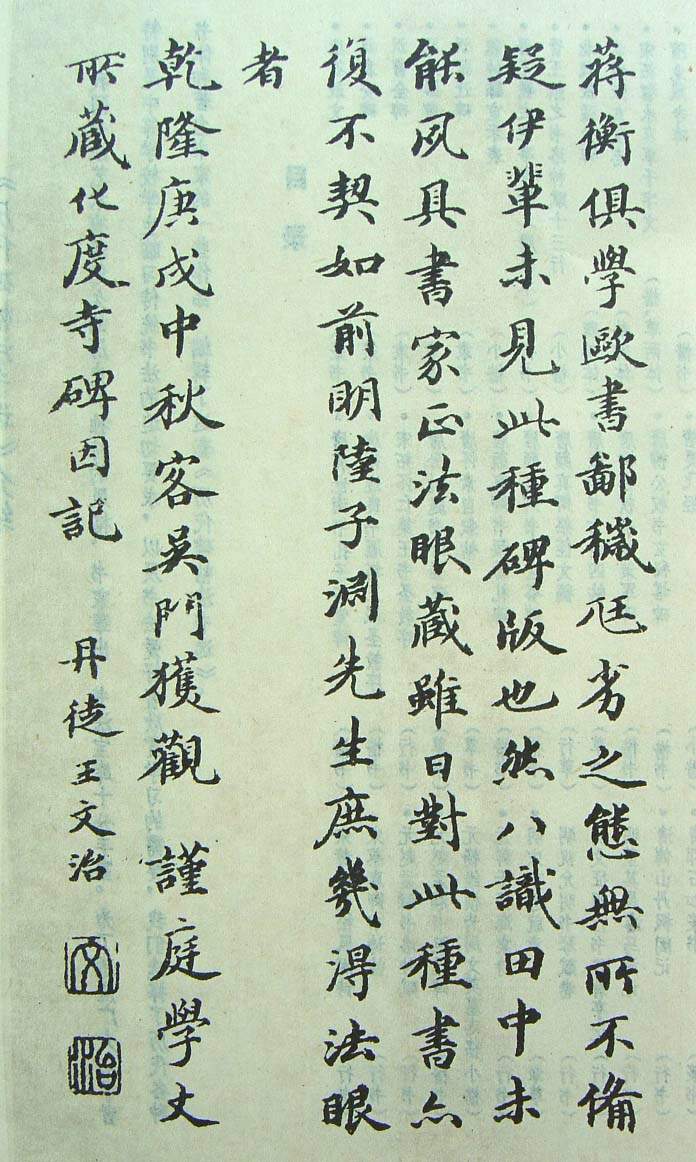 蔣衡俱學歐書鄙穢尪劣之態無所不備
疑伊輩未見此種碑版也然八識田中未
能夙具書家正法眼藏雖日對此種書亦
復不契如前明陸子淵先生庶幾得法眼
者
乾隆庚戌中秋客吳門獲觀 謹庭學丈
所藏化度寺碑因記 丹徒王文治
文
治